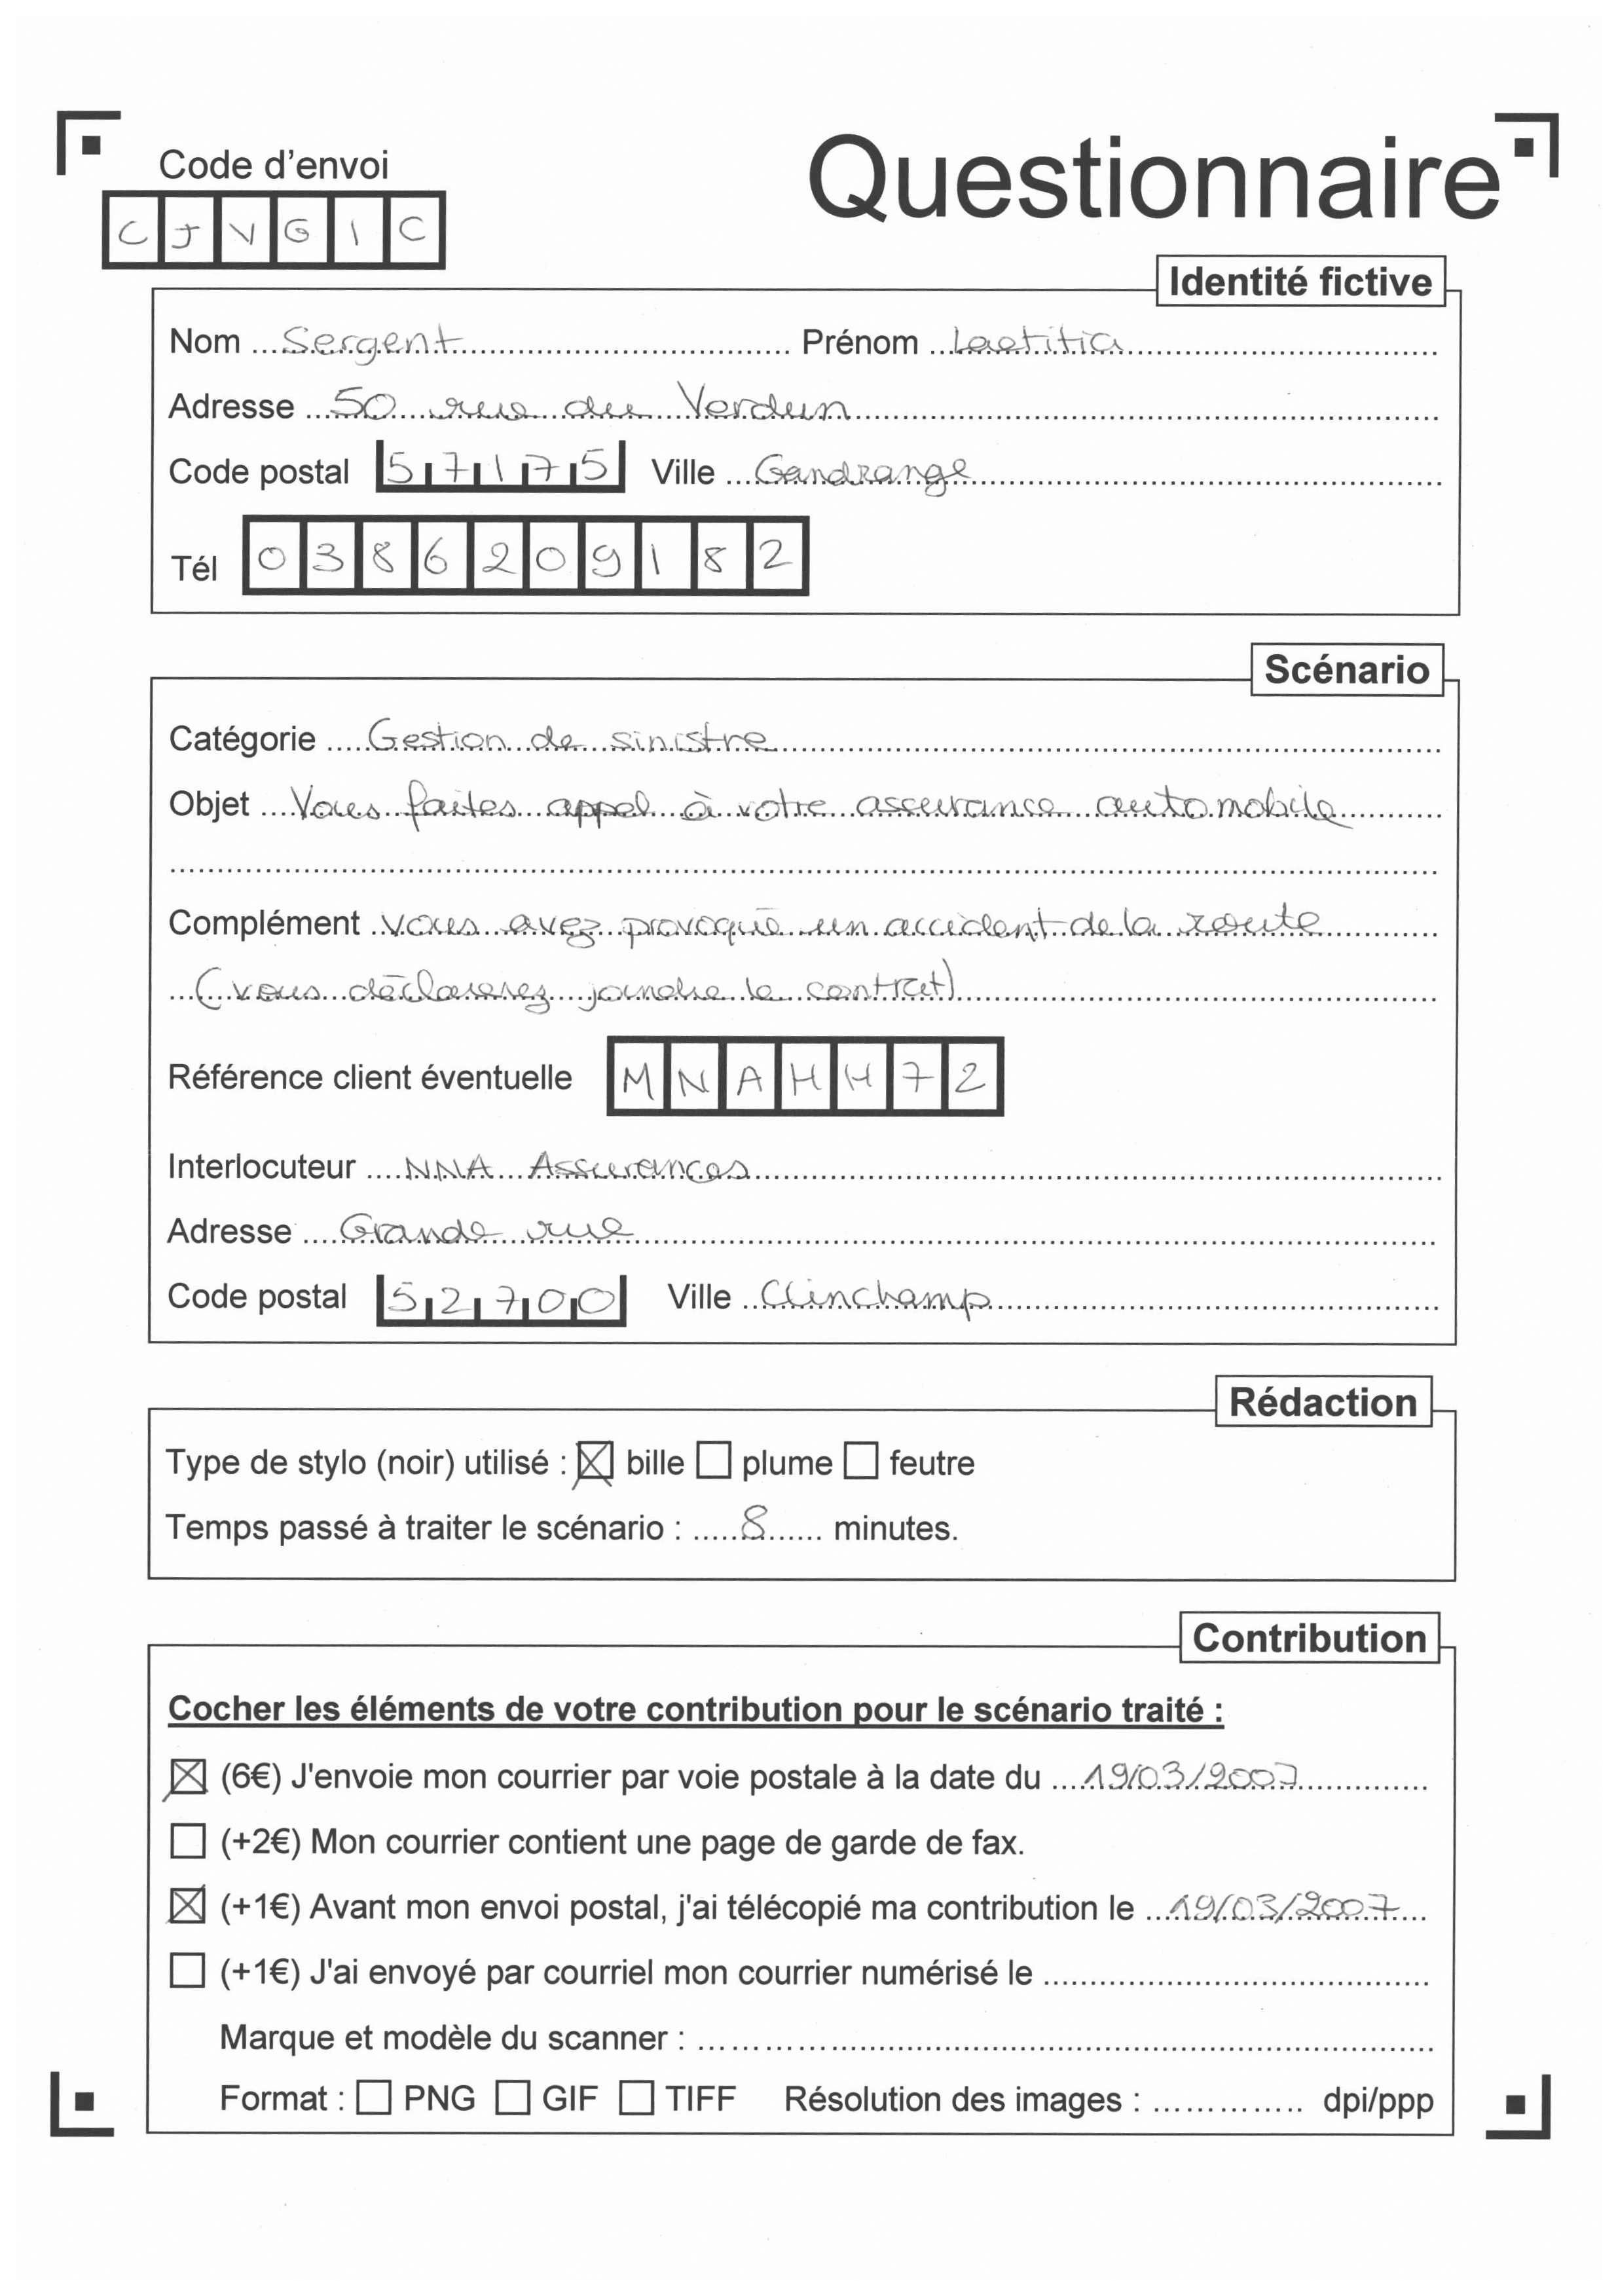 Code d'envoi
Questionnaire
CJVGIC
Identité fictive
Nom Sergent Prénom Laetitia
Adresse 50 rue du Verdun
Code postal 57175 Ville Gandrange
Tél 0386209182
Scénario
Catégorie Gestion de sinistre
Objet Vous faites appel à votre assurance automobile
Complément vous avez provoqué un accident de la route
(vous déclarerez joindre le contrat)
Référence client éventuelle MNAHH72
Interlocuteur NNA Assurances
Adresse Grande rue
Code postal 52700 Ville Clinchamp
Rédaction
Type de stylo (noir) utilisé : ☒ bille ☐ plume ☐ feutre
Temps passé à traiter le scénario : 8 minutes.
Contribution
Cocher les éléments de votre contribution pour le scénario traité :
☒ (6€) J'envoie mon courrier par voie postale à la date du 19/03/2007
☐ (+2€) Mon courrier contient une page de garde de fax.
☒ (+1€) Avant mon envoi postal, j'ai télécopié ma contribution le 19/03/2007
☐ (+1€) J'ai envoyé par courriel mon courrier numérisé le
Marque et modèle du scanner :
Format : ☐ PNG ☐ GIF ☐ TIFF Résolution des images : dpi/ppp